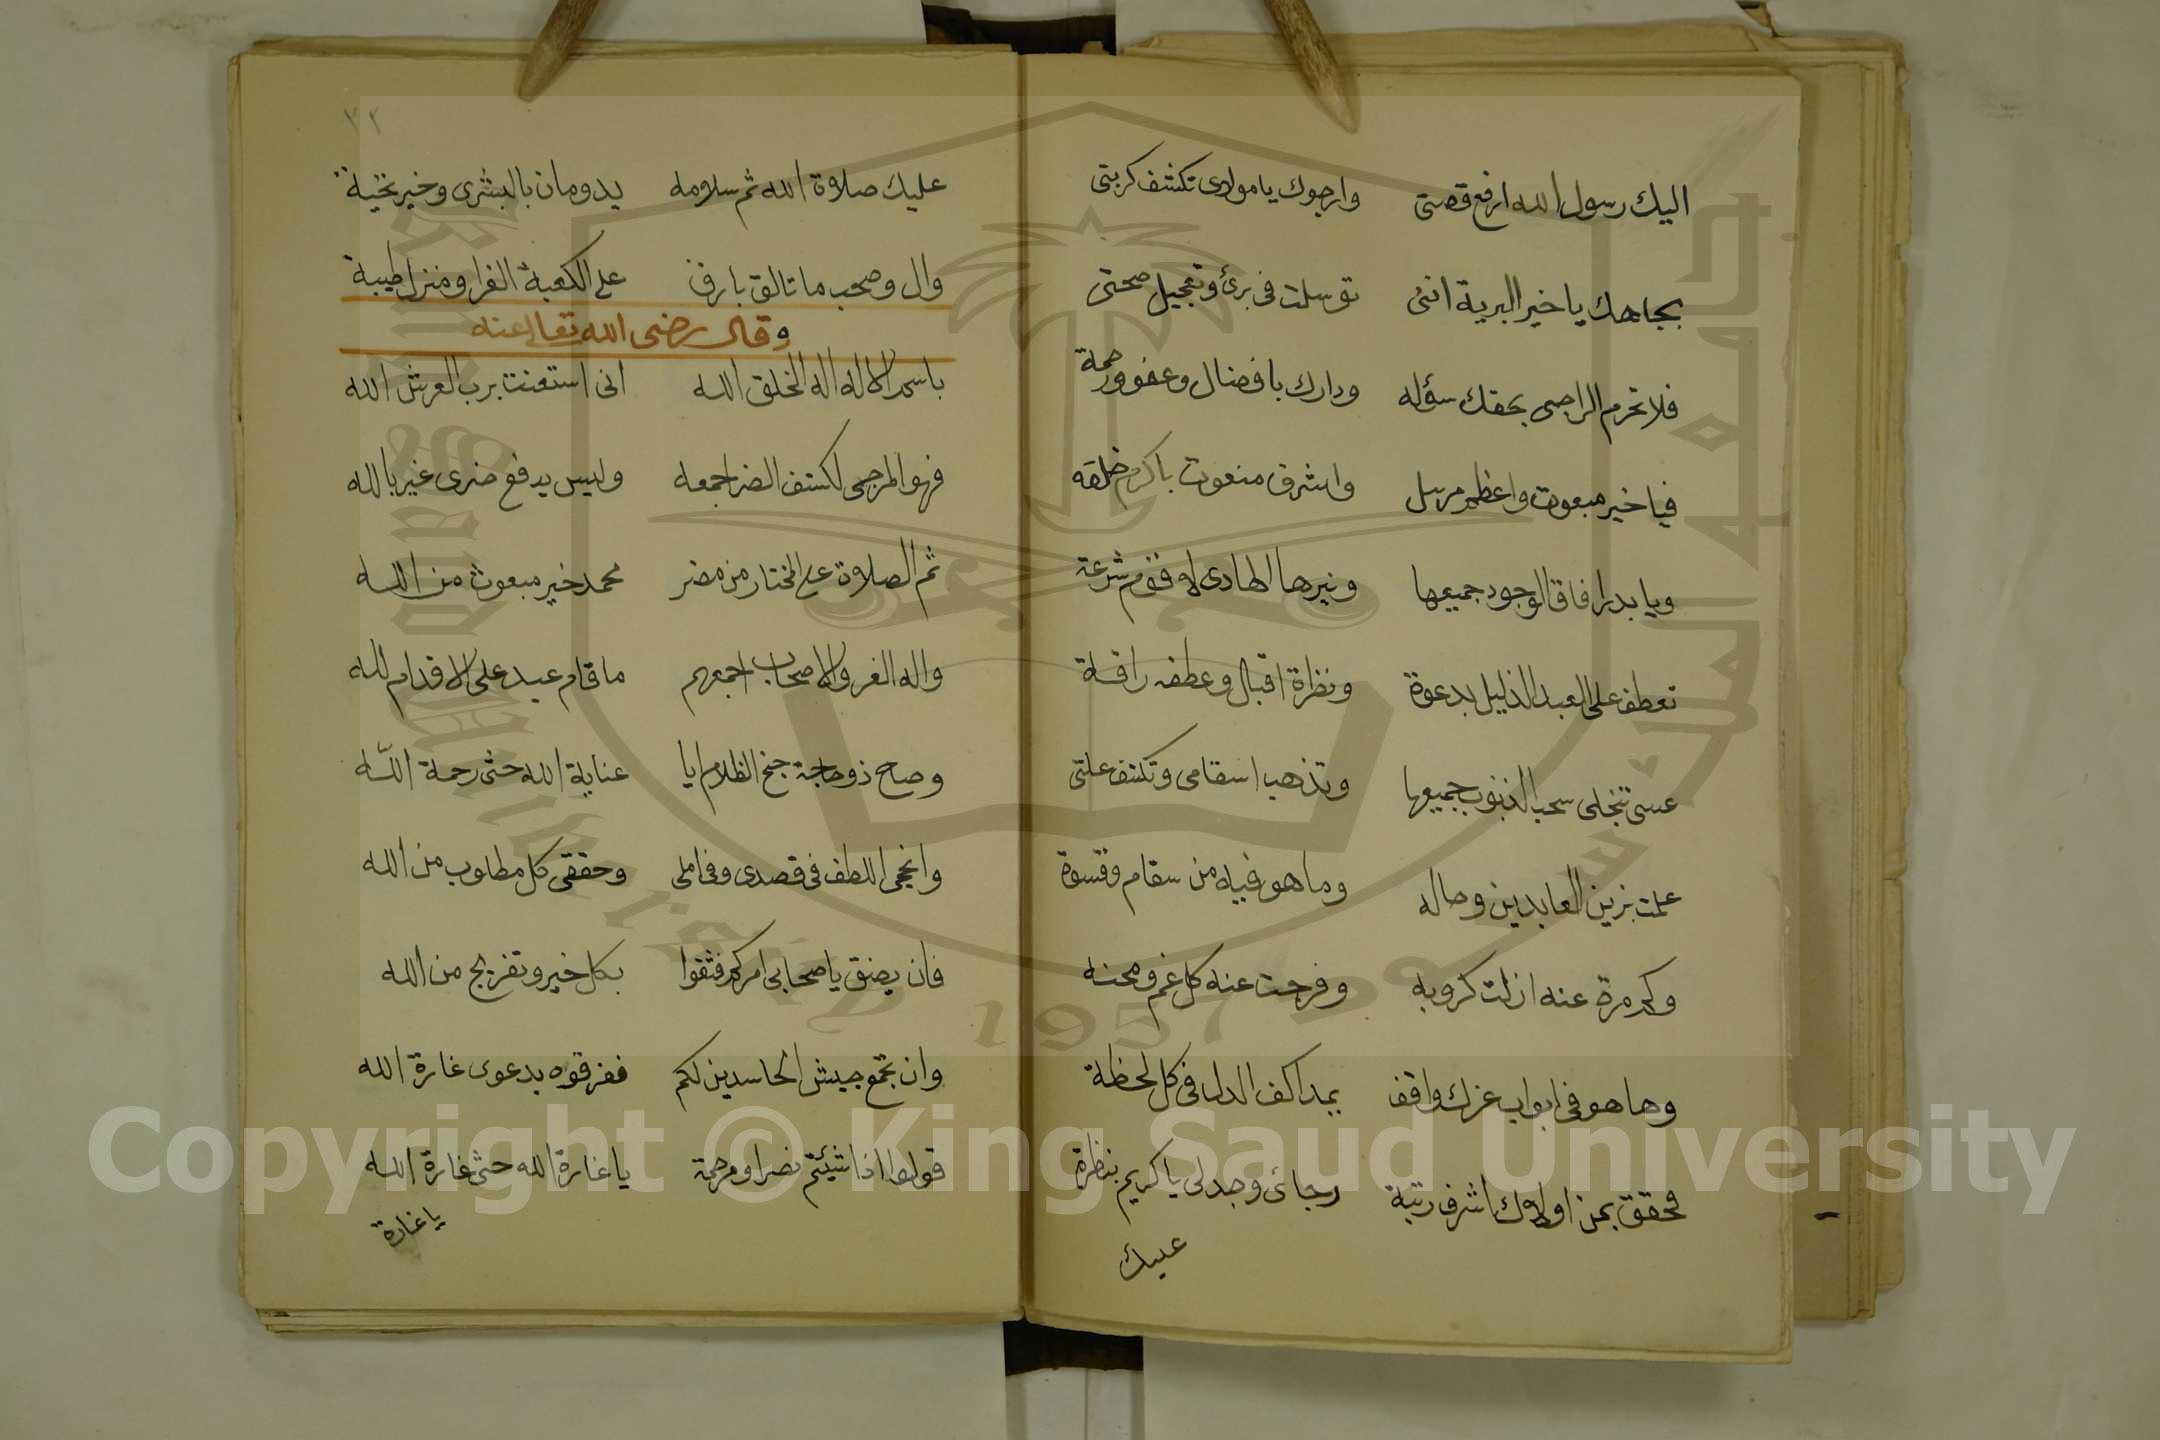 اليك رسول الله ارفع قصتى وارجوك يا مولاى تكشف كربتى
بجاهك يا خير البرية اننى توسلت فى برئ وتعجيل صحتى
فلا تحرم الراجى بحقك سؤله ودارك بافضال وعفو ورحمة
فيا خير مبعوث واعظم مرسل واشرق منعوت باكرم خلقه
ويا بدر افاق الوجود جميعها ونيرها الهادى لاقوم شرعة
تعطف على العبد الذليل بدعوة ونظرة اقبال وعطفه رافة
عسى تنجلى سحب الذنوب جميعها وتذهب اسقامى وتكشف علتى
علمت بزين العابدين وحاله وما هو فيه من سقام وقسوة
وكم مرة عنه ازلت كروبه وفرجت عنه كل غم ومحنه
وها هو فى ابواب عزك واقف يمد اكف الذل فى كل لحظة
فحقق بمن اولاك اشرف رتبة رجائ وجد لى يا كريم بنظرة
عليك
٣٢
عليك صلاة الله ثم سلامه يدومان بالبشرى وخير تحية
وال وصحب ما تالق بارق على الكعبة الغرا ومنزل طيبة
وقال رضى الله تعالى عنه
باسم الاله اله الخلق الله انى استعنت برب العرش الله
فهو المرجى لكشف الضر اجمعه وليس يدفع ضرى غير بالله
ثم الصلاة على المختار من مضر محمد خير مبعوث من الله
واله الغر والاصحاب اجمعهم ما قام عبد على الاقدام لله
وصاح ذو حاجة جنح الظلام ايا عناية الله حثى رحمة الله
وانجى اللطف فى قصدى وفى املى وحققى كل مطلوب من الله
فان يضق يا صحابى امركم فثقوا بكل خير وتفريج من الله
وان تجمع جيش الحاسدين لكم ففرقوه بدعوى غارة الله
قولوا اذا شيئتم نصرا ومرحمة يا غارة الله حثى غارة الله
يا غارة
Copyright © King Saud University
جامعة الملك سعود
King Saud University
1957